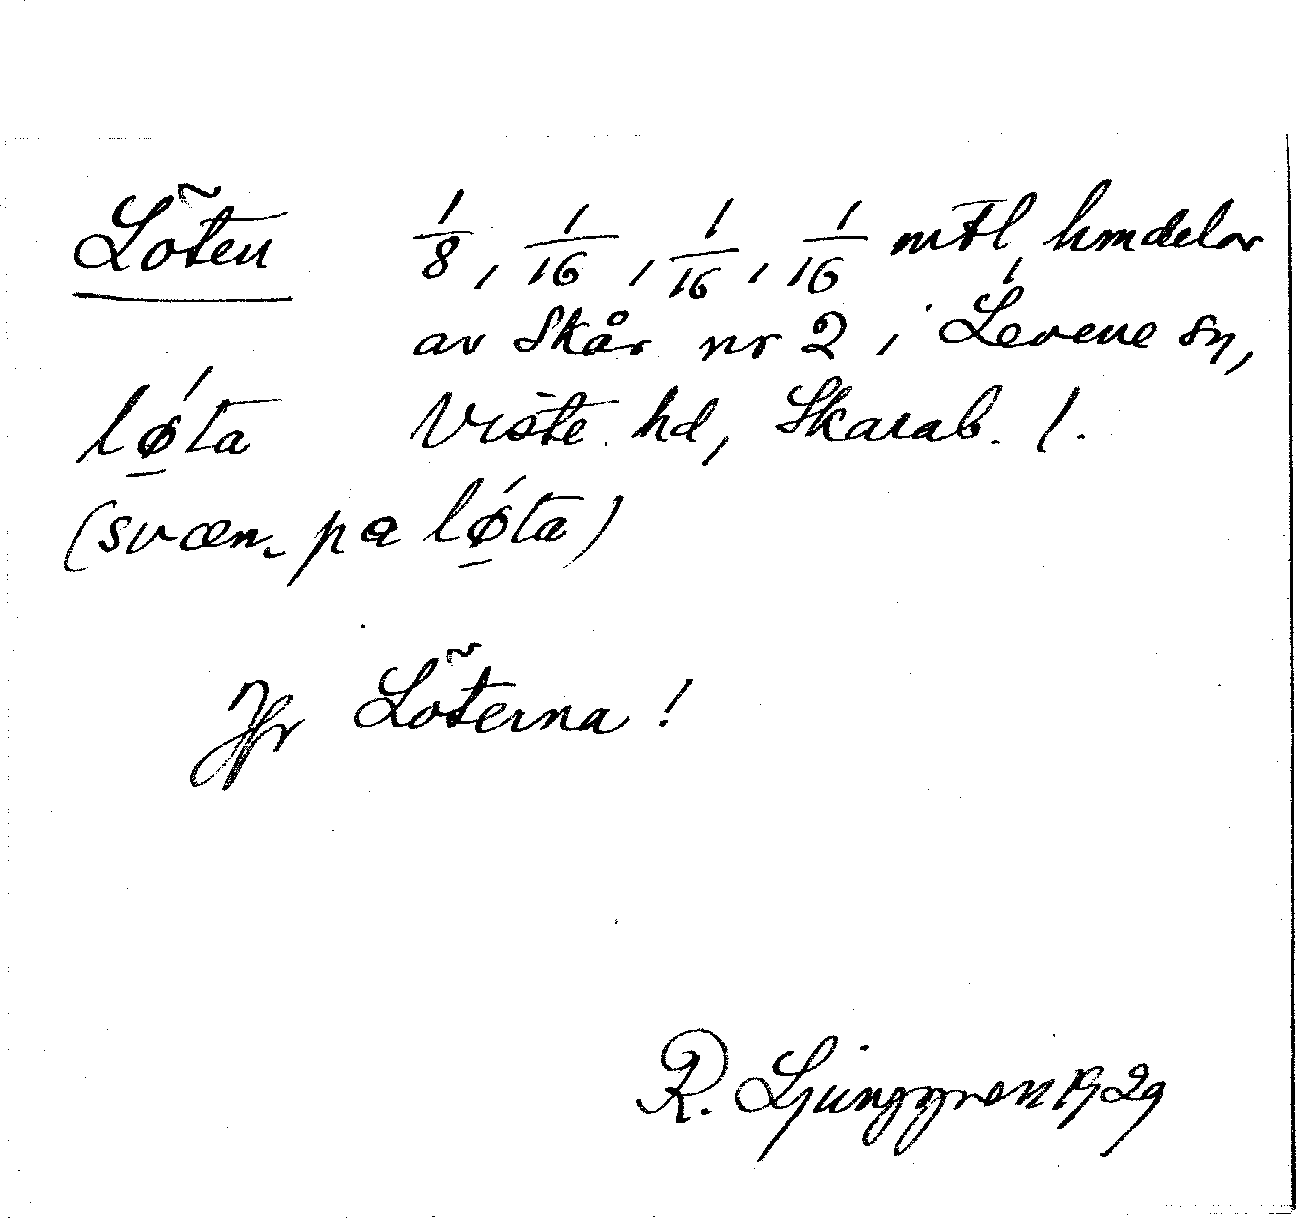 Löten 1/8, 1/16, 1/16, 1/16 mtl hmdelar
av Skår nr 2 i Levene sn,
lǿta Viste hd, Skarab. l.
(svæn. pa lǿta)
Jfr Löterna!
R. Ljunggren 1929